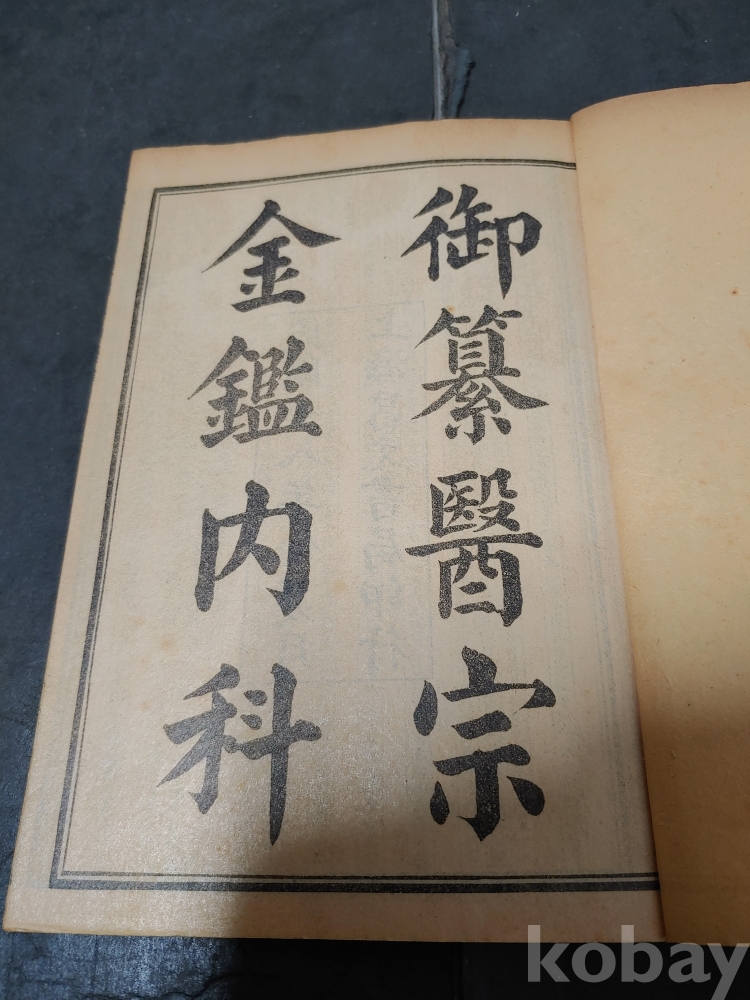 御纂醫宗
金鑑内科
kobay